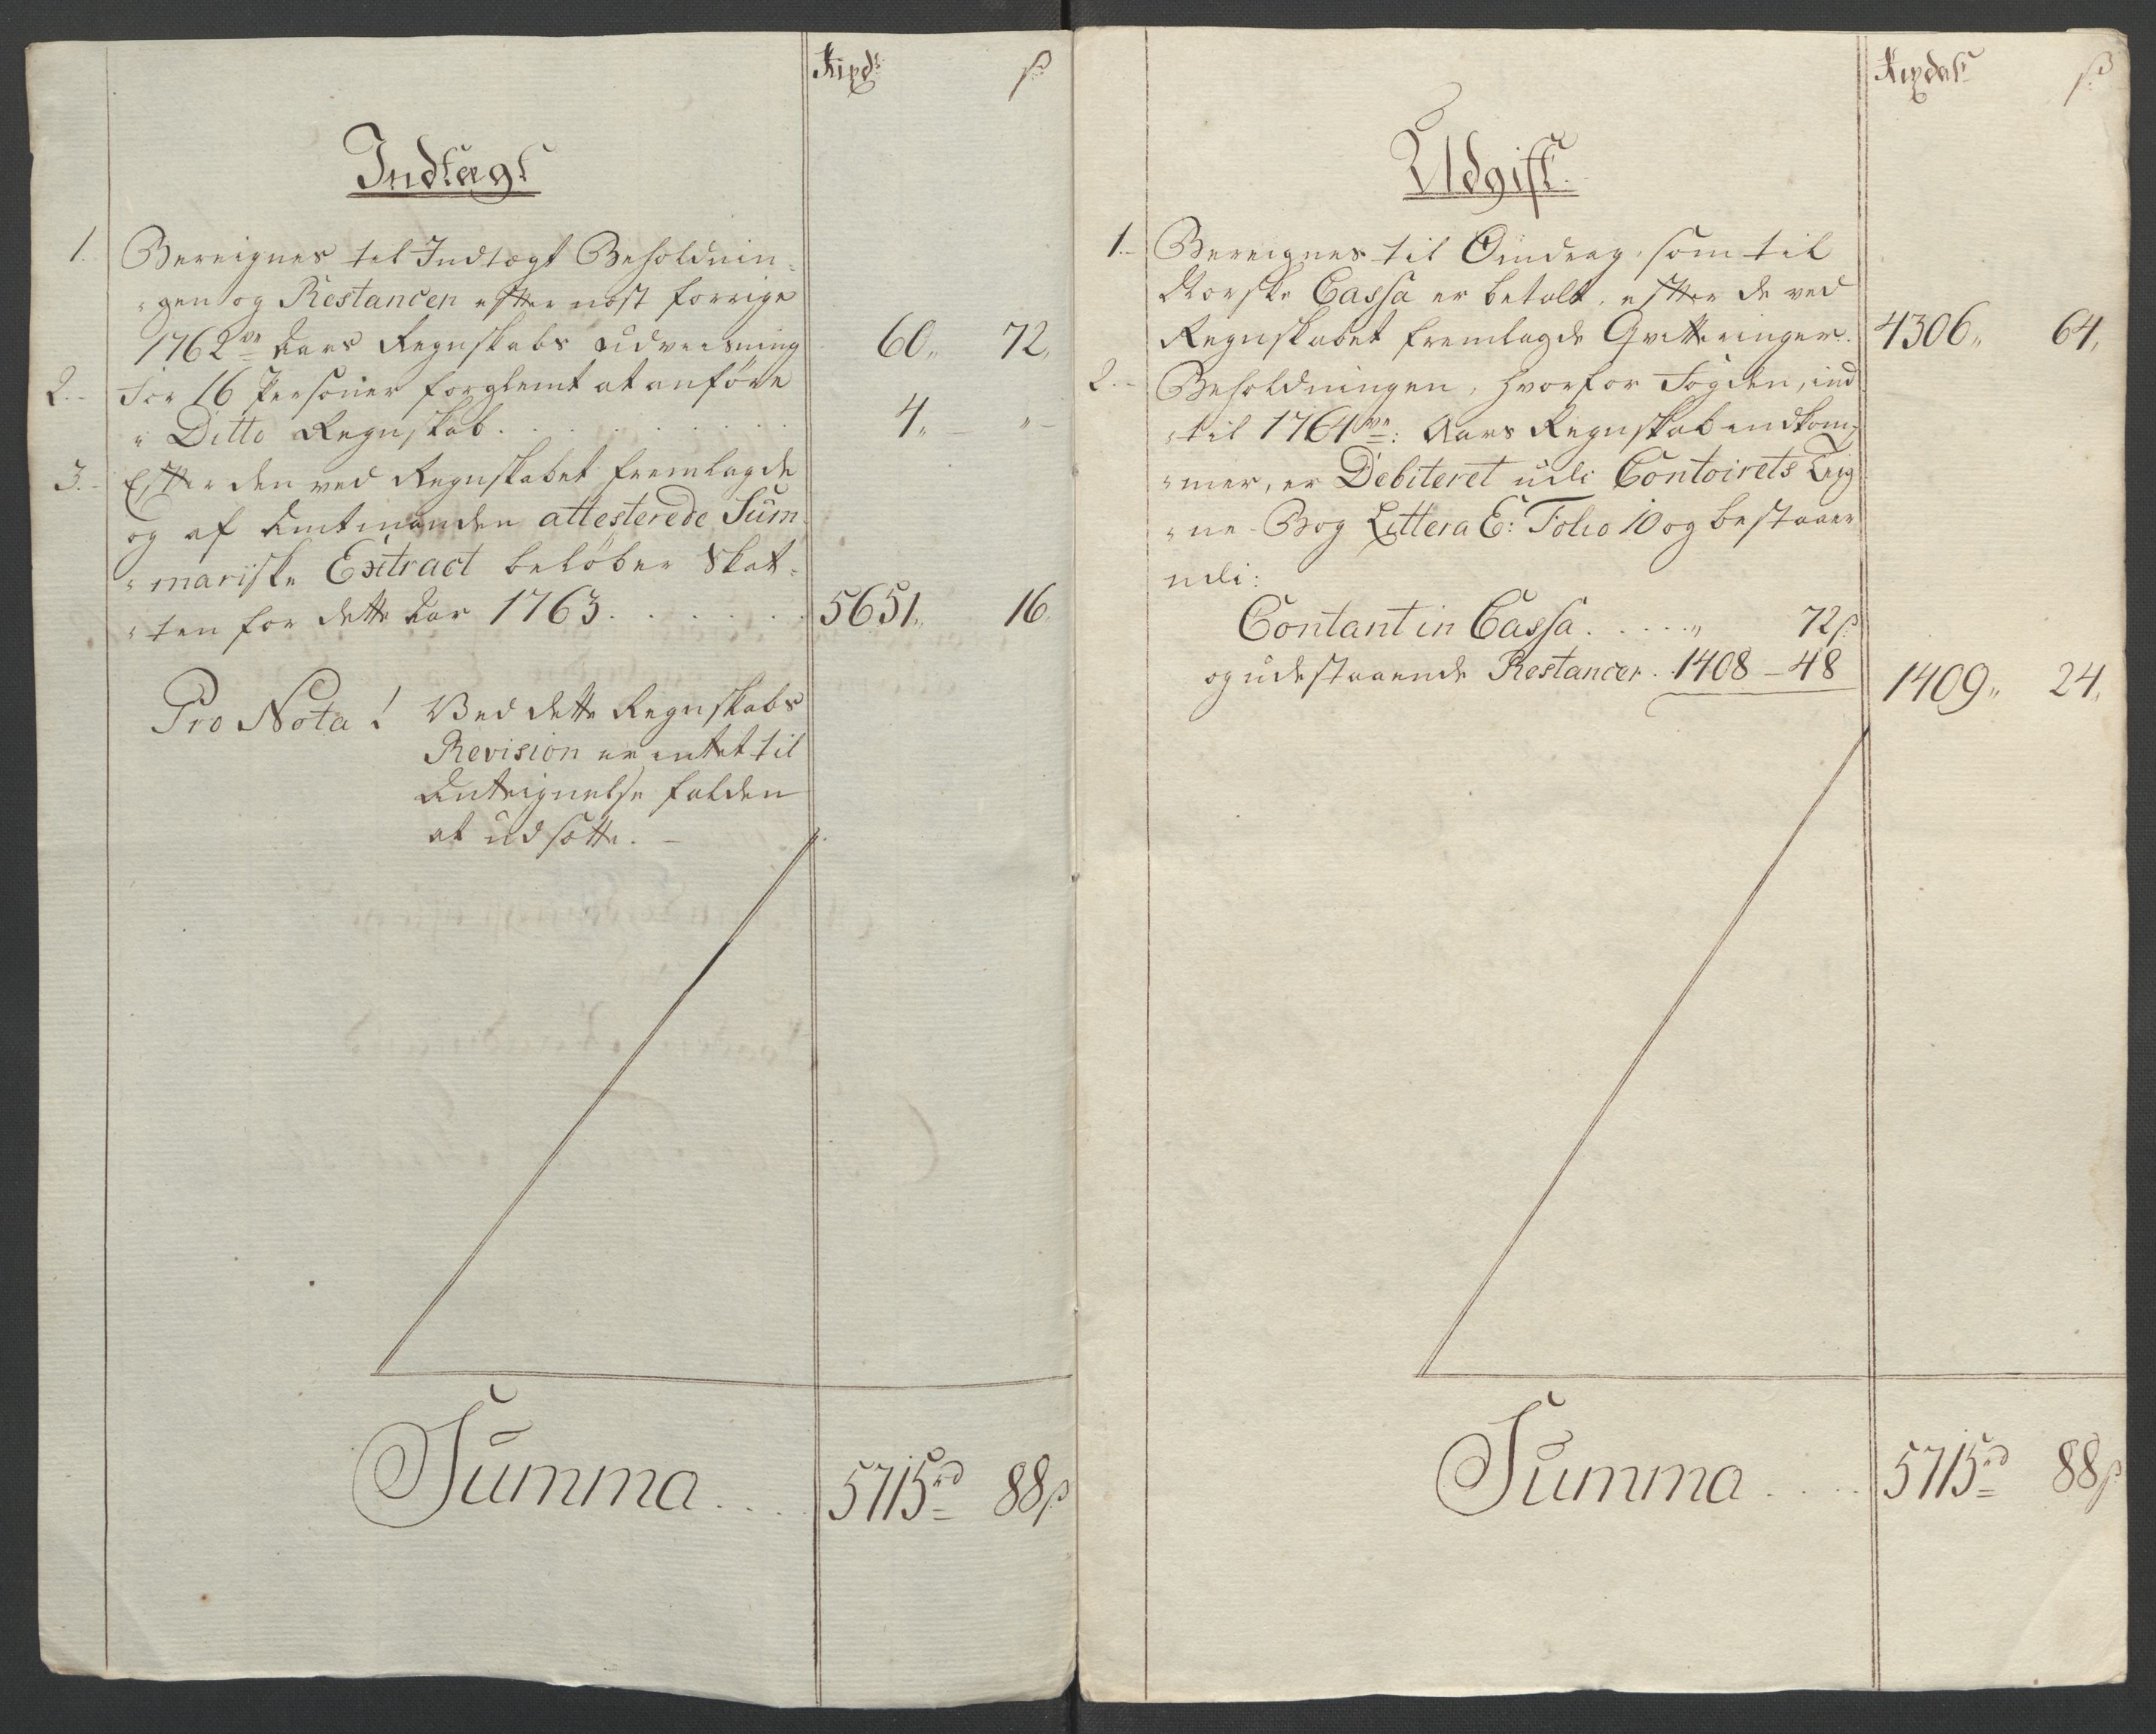 Rixdr ß
Indtægt
1. Beregnes til Indtægt Beholdnin-
gen og Restancen efter nøst forrige
1762de Aars Regnskabs udviisning 60,, 72,
2. For 16 Personer forglemt at anføre
i Ditto Regnskab . . . . . . . . . 4,, „
3. Efter den ved Regnskabet fremlagde
og af Amtmanden attesterede Sum-
mariske Extract beløber Skat-
ten for dette Aar 1763 . . . . . . 5651,, 16
Pro Nota! Ved dette Regnskabs
Revision er intet til
Antegnelse falden
at udsætte. –
Summa . . . 5715rd 88ß
Rixdalr ß
Udgift
1. Beregnes til Omdrag, som til
Norske Cassa er betalt, efter de ved
Regnskabet fremlagde Qvitteringer. 4306,, 64,
2. Beholdningen, hvorfor Fogden, ind
til 1764de: Aars Regnskab indkom-
mer, er Debiteret udi Contoirets Teig
ne-Bog Littera E: Folio 10 og bestaaer
udi:
Contant in Cassa . . . . „ 72ß
og udestaaende Restancer . 1408 – 48 1409,, 24,
Summa . . . . 5715rd 88ß